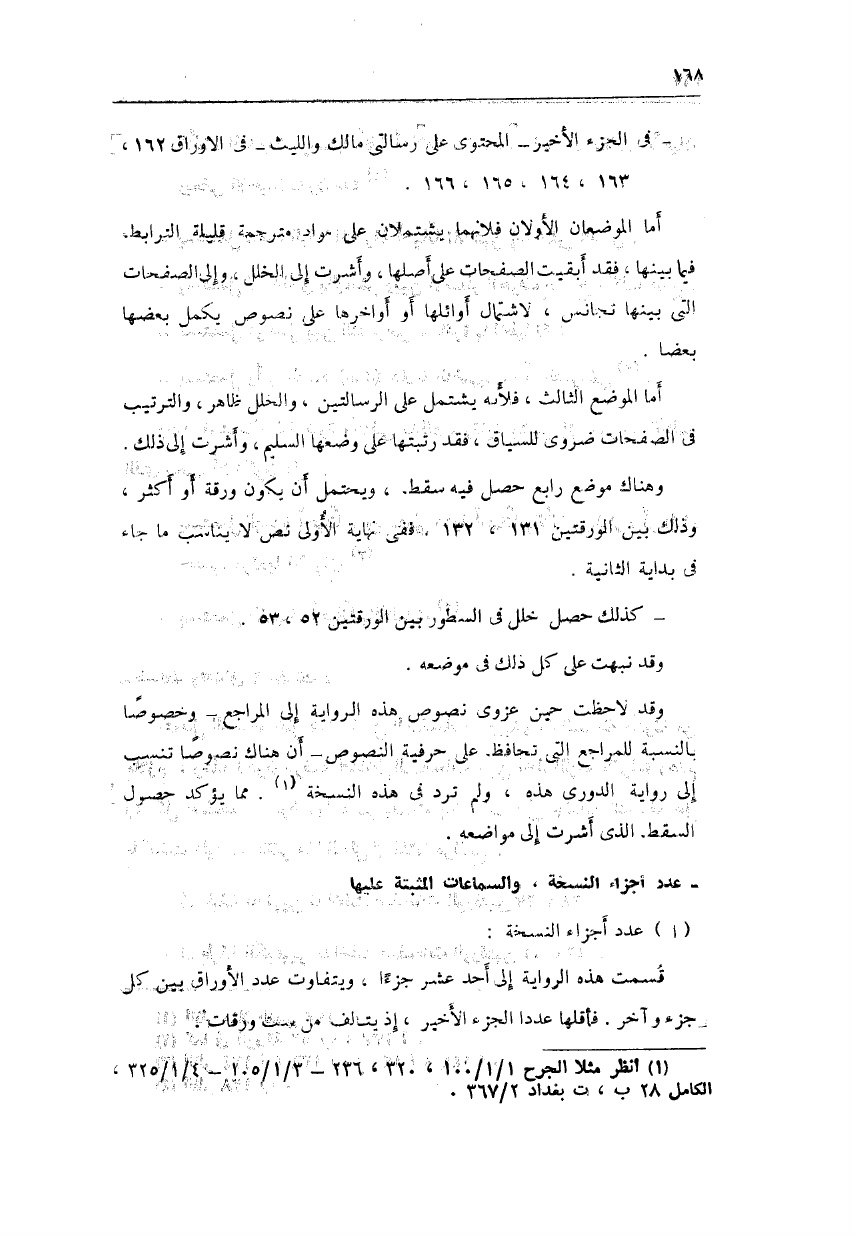 ١٦٨
ـ فى الجزء الأخير ـ المحتوى على رسالتى مالك والليث ـ فى الاوراق ١٦٢ ،
١٦٣ ، ١٦٤ ، ١٦٥ ، ١٦٦ .
أما الموضعان الأولان فلانهما يشتملان على مواد مترجمة قليلة الترابط
فيما بينها ، فقد أبقيت الصفحات على أصلها ، وأشرت إلى الخلل ، وإلى الصفحات
التى بينها تجانس ، لاشتمال أوائلها أو أواخرها على نصوص يكمل بعضها
بعضا .
أما الموضع الثالث ، فلأنه يشتمل على الرسالتين ، والخلل ظاهر ، والترتيب
فى الصفحات ضروى للسياق ، فقد رتبتها على وضعها السليم ، وأشرت إلى ذلك .
وهناك موضع رابع حصل فيه سقط ، ويحتمل أن يكون ورقة أو أكثر ،
وذلك بين الورقتين ١٣١ ، ١٣٢ ، ففى نهاية الأولى نص لا يناسب ما جاء
فى بداية الثانية .
ـ كذلك حصل خلل فى السطور بين الورقتين ٥٢ ، ٥٣ .
وقد نبهت على كل ذلك فى موضعه .
وقد لاحظت حين عزوى نصوص هذه الرواية إلى المراجع ـ وخصوصًا
بالنسبة للمراجع التى تحافظ على حرفية النصوص ـ أن هناك نصوصًا تنسب
إلى رواية الدورى هذه ، ولم ترد فى هذه النسخة (١) . مما يؤكد حصول
السقط الذى أشرت إلى مواضعه .
ـ عدد أجزاء النسخة ، والسماعات المثبتة عليها
( ا ) عدد أجزاء النسخة :
قُسمت هذه الرواية إلى أحد عشر جزءًا ، ويتفاوت عدد الأوراق بين كل
جزء وآخر . فأقلها عددا الجزء الأخير ، إذ يتألف من ست ورقات .
(١) انظر مثلا الجرح ١٠٠/١/١ ، ٣٢٠ ، ٢٣٦ ـ ١٠٥/١/٣ ـ ٣٢٥/١/٤ ،
الكامل ٢٨ ب ، ت بغداد ٣٦٧/٢ .